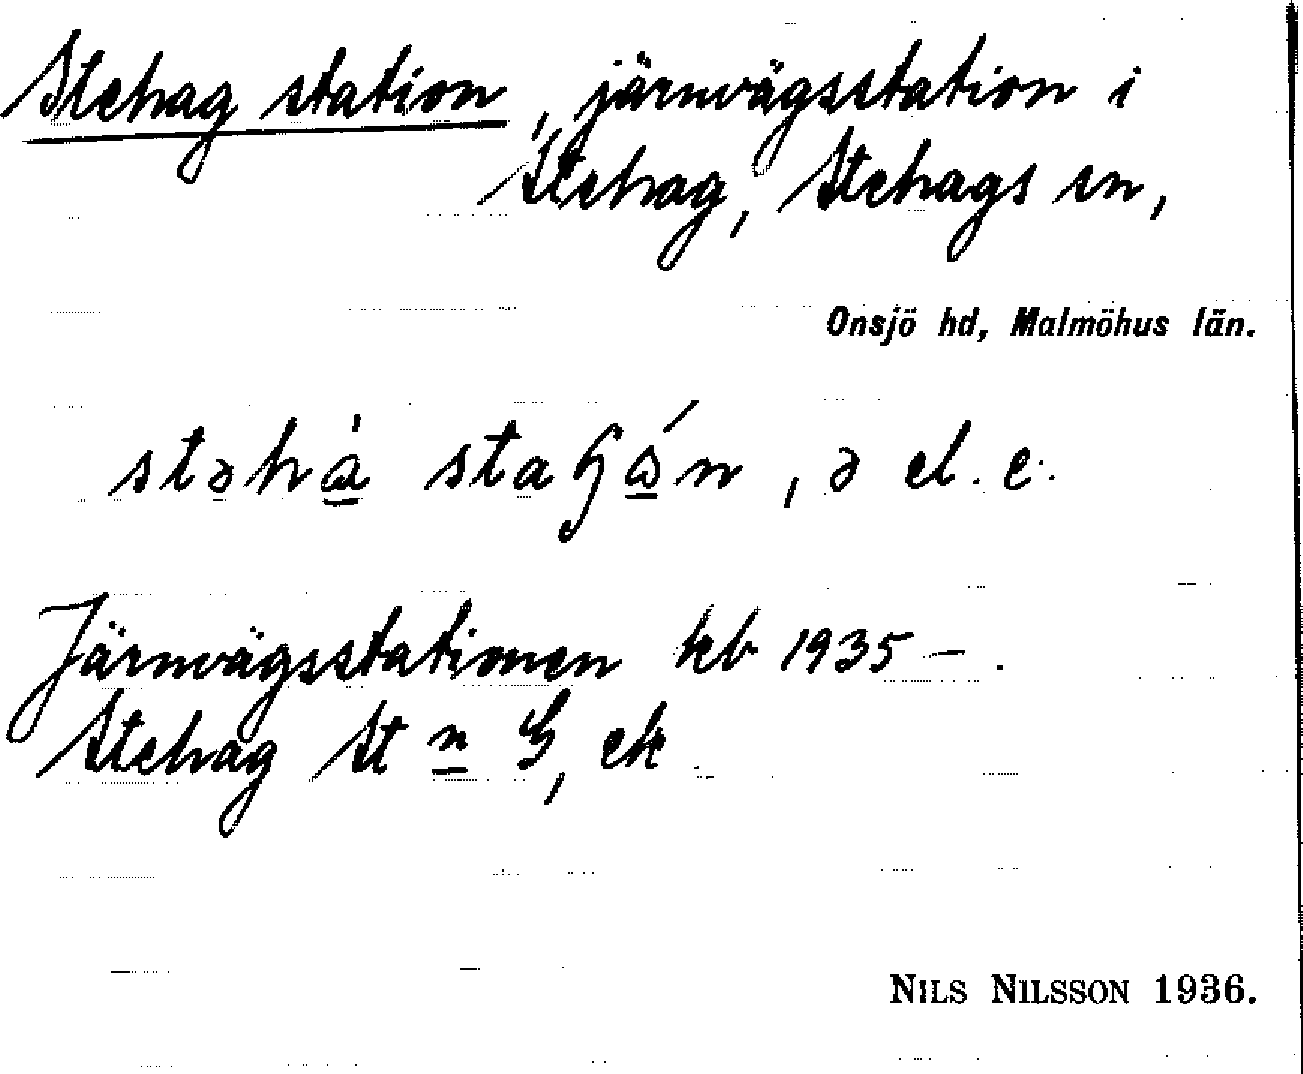 Stehag station, järnvägsstation i
Stehag, Stehags sn,
Onsjö hd, Malmöhus län.
stəhà , ə el. e.
Järnvägsstationen kb 1935–.
Stehag St n ek
NILS NILSSON 1936.